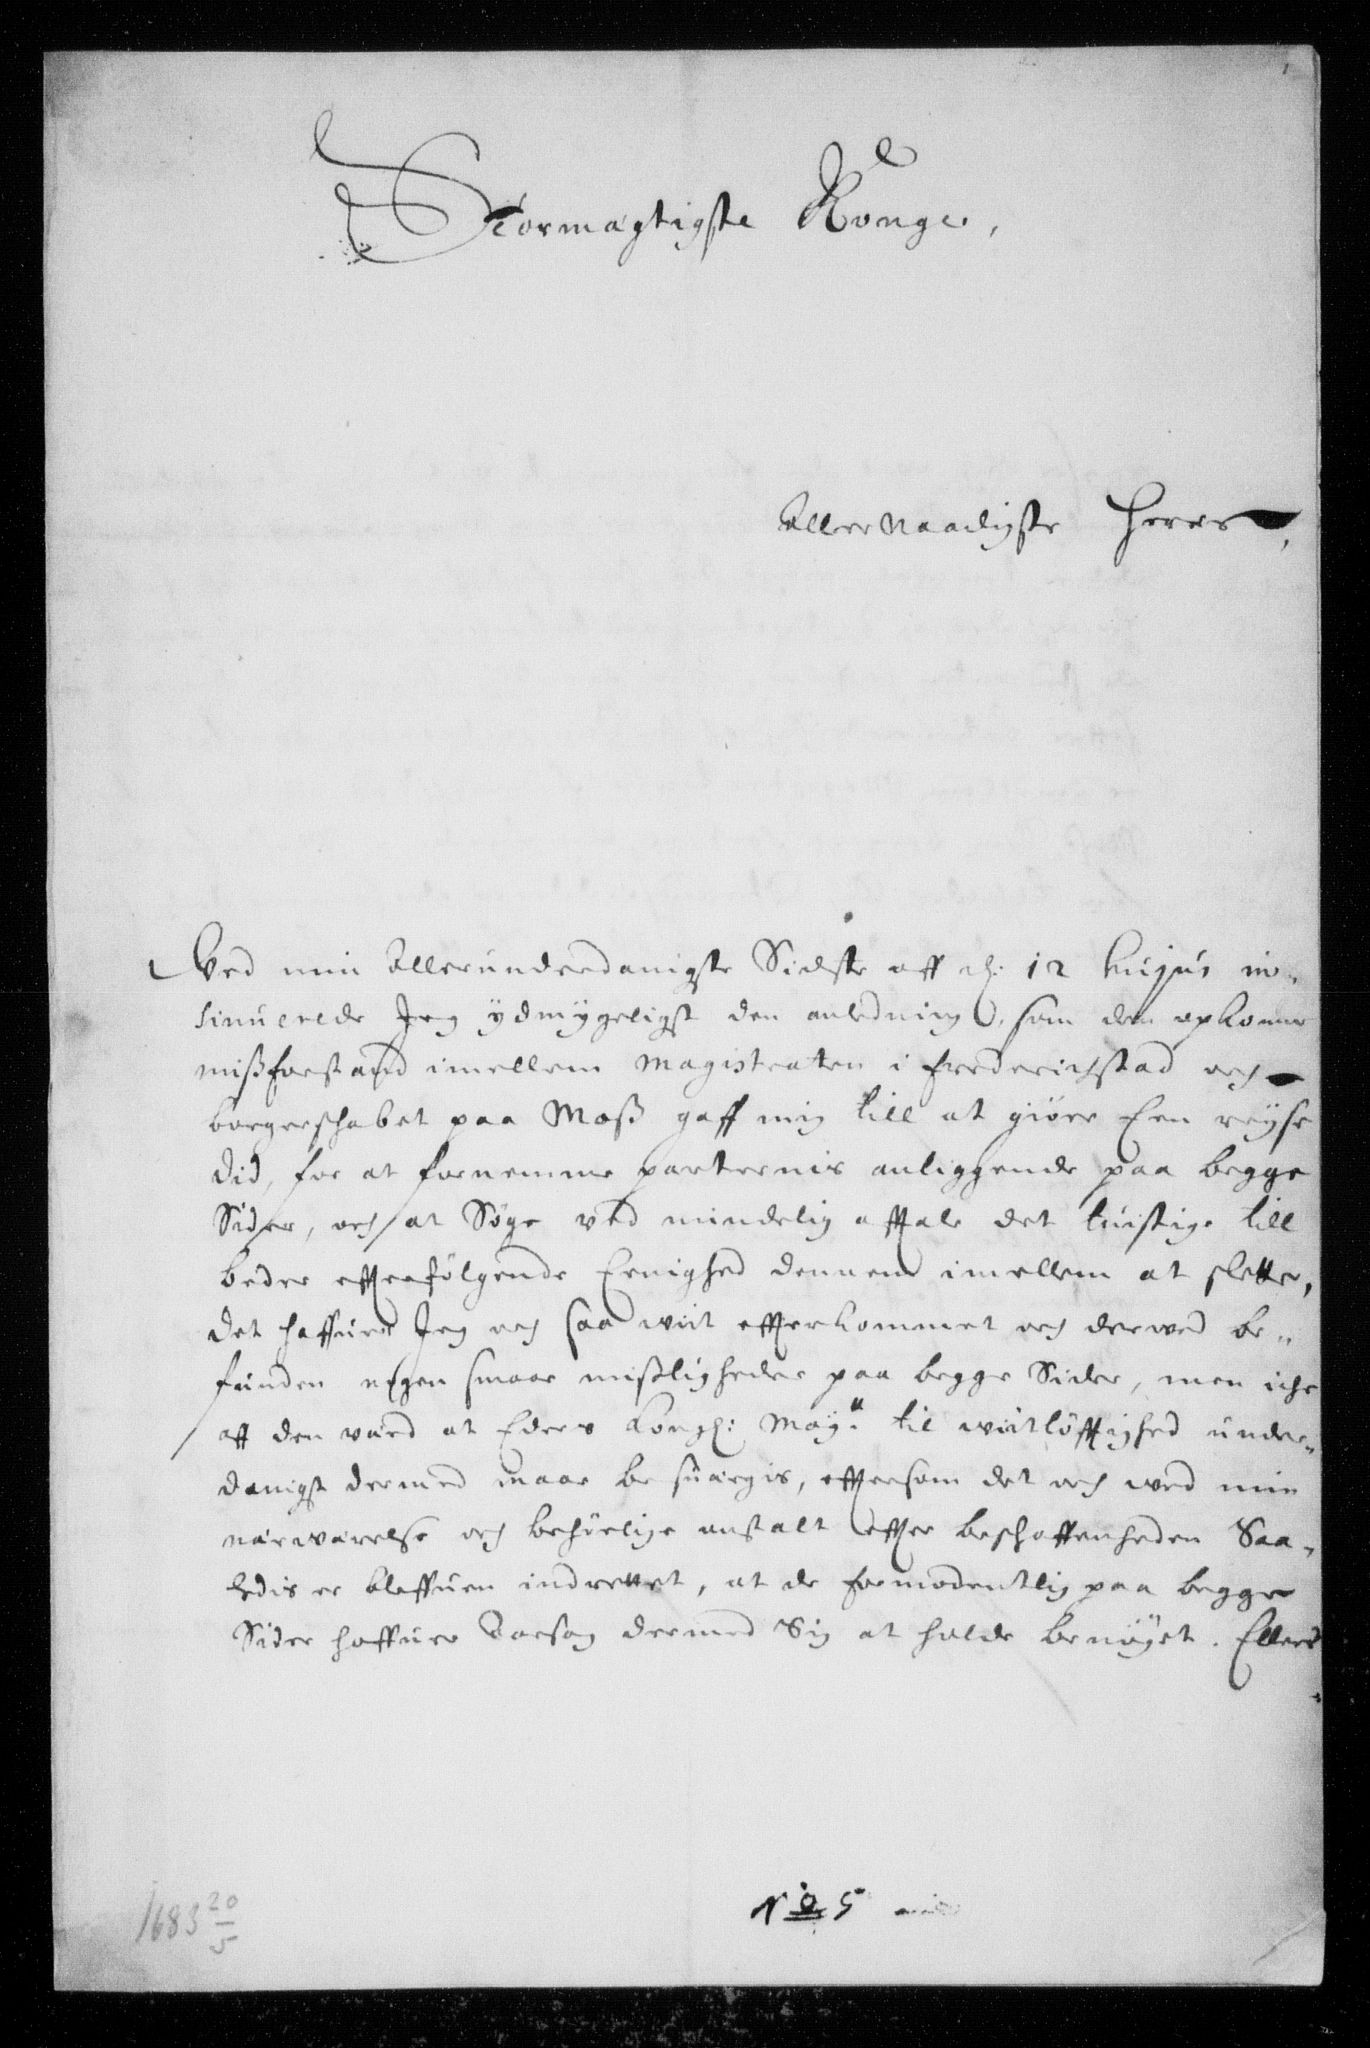 Stormagtigste Konge,
Allernaadigste Herre,
Ved min Allerunderdanigste Sidste aff d: 12 hujus in-
sinuerede Jeg ydmygeligst den anledning, som den opkomne
mißforstand imellem Magistraten i Frederichstad och
borgerschabet paa Moß gaff mig till at giøre Een reyse
did, for at fornemme parternis anliggende paa begge
Sider, och at Søge ved mindelig afftale det tuistige till
bedre effterfølgende Eenighed dennem imellem at slette,
det haffuer Jeg och saa wiit effterkommet och derwed be-
funden nogen smaae mißligheder paa begge Sider, men iche
aff den værd at Eders Kongl: May:tt til wiitløfftighed under-
danigst dermed maae besuærgis, efftersom det och wed min
nærwærelse och behørlige anstalt effter beschaffenheden Saa-
ledis er bleffuen indrettet, at de formodentlig paa begge
Sider haffuer Aarsag dermed Sig at holde benøyet. Ellers
No 5
1683 20/5